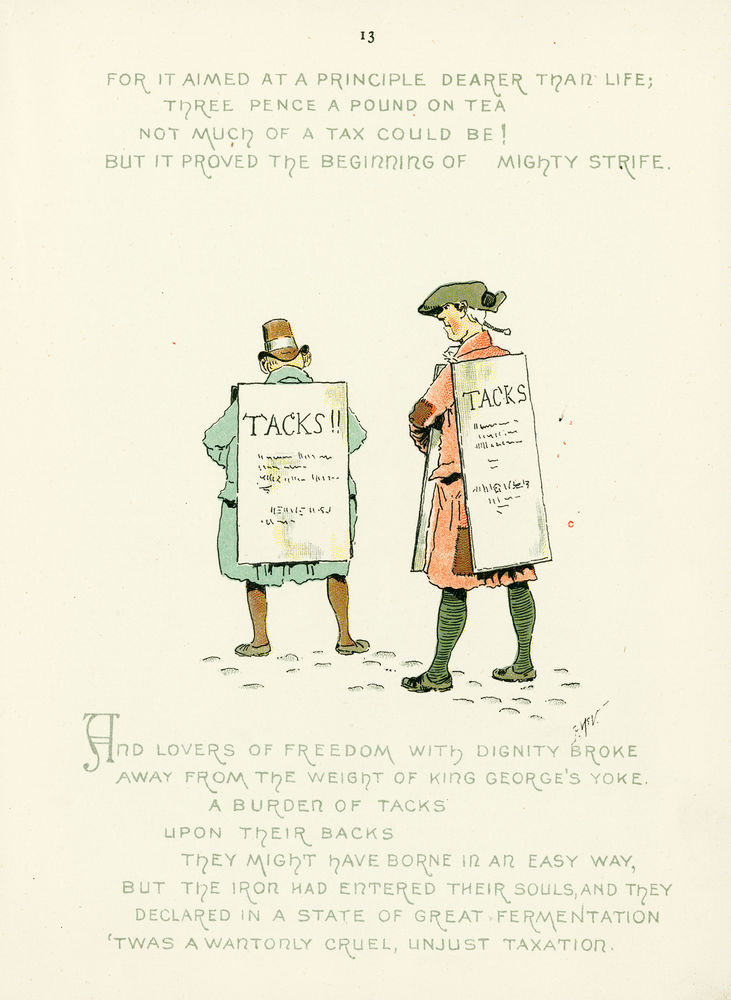 13
FOR IT AIMED AT A PRINCIPLE DEARER THAN LIFE;
THREE PENCE A POUND ON TEA
NOT MUCH OF A TAX COULD BE!
BUT IT PROVED THE BEGINNING OF MIGHTY STRIFE.
TACKS!!
TACKS
AND LOVERS OF FREEDOM WITH DIGNITY BROKE
AWAY FROM THE WEIGHT OF KING GEORGE'S YOKE.
A BURDEN OF TACKS
UPON THEIR BACKS
THEY MIGHT HAVE BORNE IN AN EASY WAY,
BUT THE IRON HAD ENTERED THEIR SOULS, AND THEY
DECLARED IN A STATE OF GREAT FERMENTATION
'TWAS A WANTONLY CRUEL, UNJUST TAXATION.